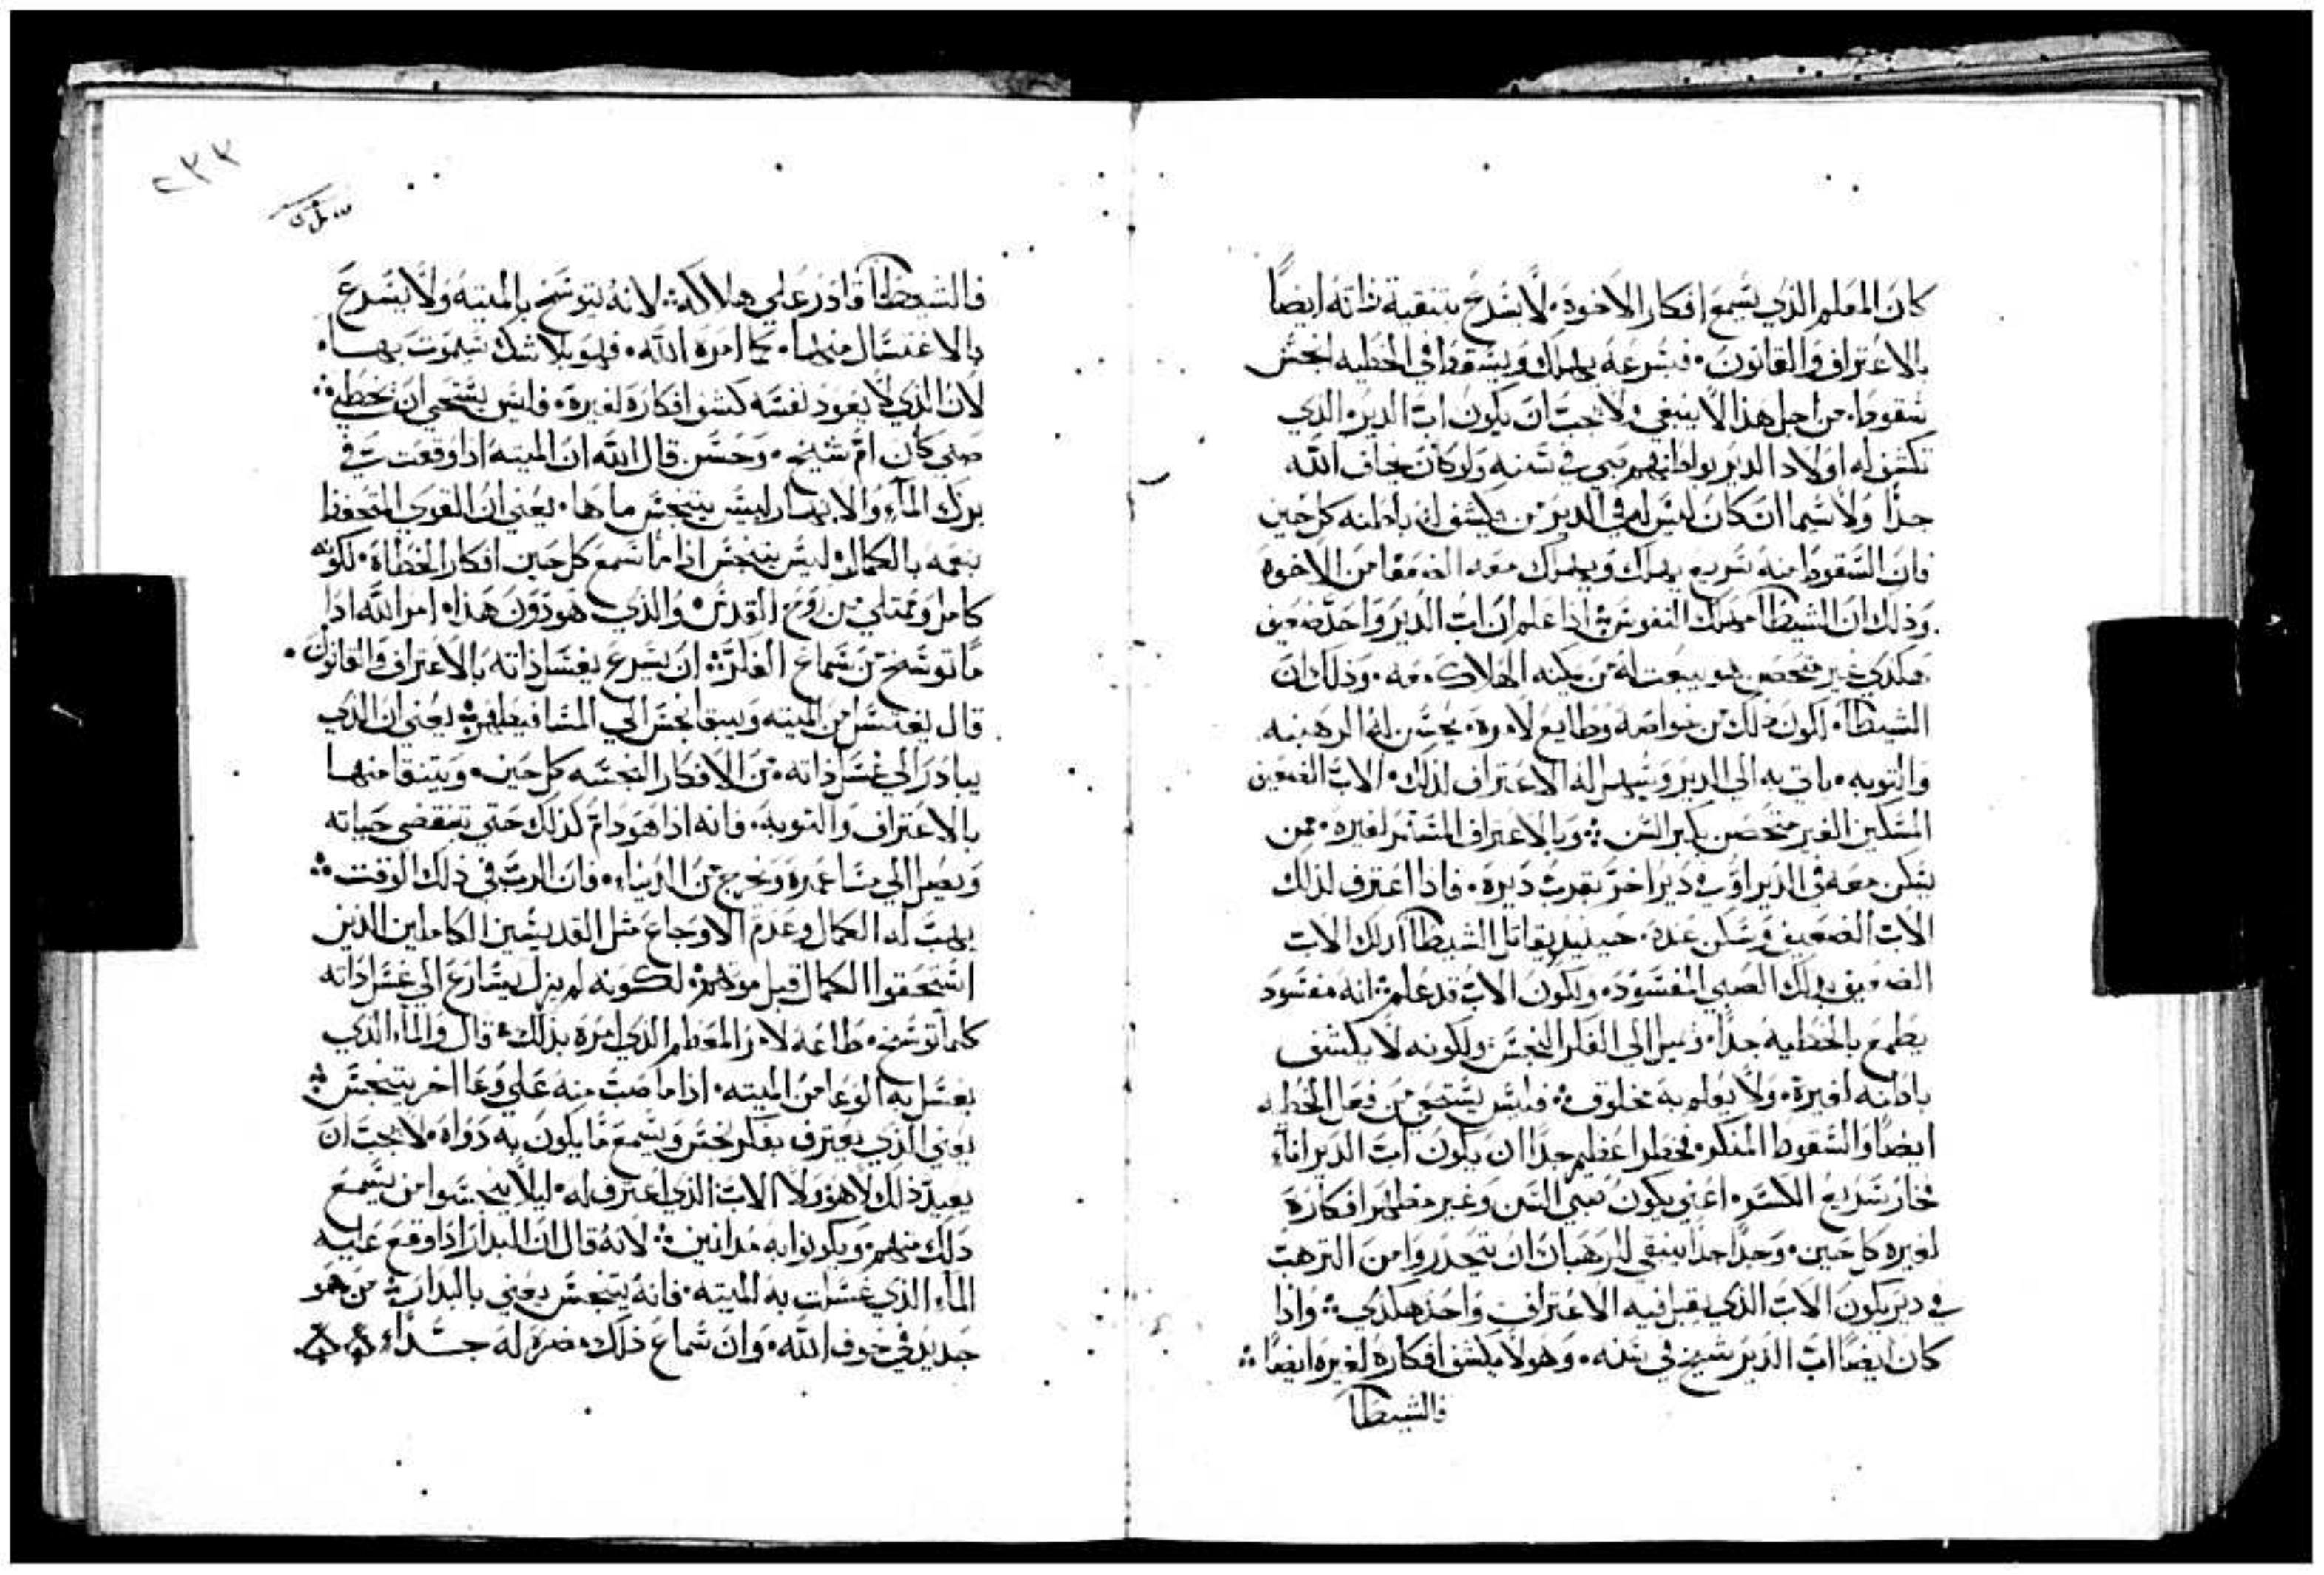 كان المعلم الذي يسمع افكار الاخوة. لا يسرع بتنقية ذاته ايضاً
بالاعتراف والقانون. فبسرعه يهلك ويسقط في الخطيه انجس
سقوط. من اجل هذا لا ينبغي ولا يجب ان يكون اب الدير الذي
تكشف له اولاد الدير بواطنهم صبي في سنه ولو كان يخاف الله
جدًا ولا سيما ان كان ليس له في الدير من يكشف له باطنه كل حين
فان السقوط منه سريع يهلك ويهلك معه الضعفا من الاخوة
وذلك ان الشيطا مهلك النفوس اذا علم ان اب الدير واحد ضعيف
هكذي غير متحصن هو يبعت له من يمكنه الهلاك معه. وذلك ان
الشيطا. لكون ذلك من خواصه وطايع لامره. يحسن له الرهبنه
والتوبه. ياتي به الي الدير ويسهل له الاعتراف لذلك الاب الضعيف
المسكين الغير متحصن بكبر السن وبالاعتراف المستمر لغيره. ممن
يسكن معه في الدير او في دير اخر بقرب ديره. فاذا اعترف لذلك
الاب الضعيف وسكن عنده. حينيذ يقاتل الشيطا لذلك الاب
الضعيف بذلك الصبي المفسود. ويكون الاب قد علم انه مفسود
يطمع بالخطيه جدا. ويميل الي الفكر النجس ولكونه لا يكشف
باطنه لغيره. ولا يعلم به مخلوق فليس يستحي من فعل الخطيه
ايضًا والسقوط المنكر فخطرا عظيم جدًا ان يكون اب الدير اناء
فخار سريع الكسر. اعني يكون صبي السن وغير مظهر افكاره
لغيره كل حين. وجدًا جدًا ينبغي للرهبان ان يتحدروا من الترهب
في دير يكون الاب الذي يقبل فيه الاعتراف واحد هكذي واذا
كان ايضًا اب الدير شيخ في سنه. وهو لا يكشف افكاره لغيره ايضًا
فالشيطا
٢٣٣
فالشيطا قادر علي هلاكه لانه يتوسخ بالميته ولا يسرع
بالاغتسال منها. كما امره الله. فهو بلا شك سيموت بها.
لان الذي لا يعود نفسه كشف افكاره لغيره. فليس يستحي ان يخطي
صبي كان ام شيخ. وحسن قال الله ان الميته اذا وقعت في
برك الماء والانهار ليس يتنجس ماها. يعني ان القوي المتحفظ
بنعمه بالكمال ليس يتنجس اذا ما سمع كل حين افكار الخطاة. لكونه
كامل وممتلي من روح القدس والذي هو دون هذا امر الله اذا
ما توسخ من سماع الفكر ان يسرع بغسل ذاته بالاعتراف والقانون.
قال يغتسل من الميته ويبقا نجس الي المسا فيطهر يعني ان الذي
يبادر الي غسل ذاته من الافكار النجسه كل حين. ويتنقا منها
بالاعتراف والتوبة. فانه اذا هو دام كذلك حتي تنقضي حياته
ويصل الي مسا عمره ويخرج من الدنيا. فان الرب في ذلك الوقت
يهب له الكمال وعدم الاوجاع مثل القديسين الكاملين الذين
استحقوا الكمال قبل موتهم لكونه لم يزل يسارع الي غسل ذاته
كلما توسخ. طاعه لامر المعظم الذي امره بذلك قال والماء الذي
يغسل به الوعا من الميته. اذا ما صب منه علي وعا اخر يتنجس
يعني الذي يعترف بفكر نجس ويسمع ما يكون به دواه لا يجب ان
يعيد ذلك لا هو ولا الاب الذي اعترف له ليلا يتنجسوا من يسمع
ذلك منهم ويكونوا به مدانين لانه قال ان البدار اذا وقع عليه
الماء الذي غسلت به الميته. فانه يتنجس يعني بالبدار من هو
جديد في خوف الله. وان سماع ذلك مضره له جدًا